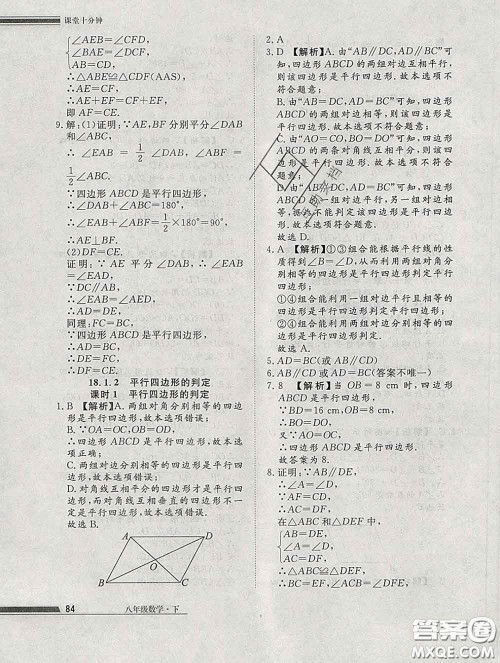 课堂十分钟
∠AEB=∠CFD,
∠BAE=∠DCF,
AB=CD,
∴△ABE≌△CDF(AAS),
∴AE=CF,
∴AE+EF=CF+EF,
即 AF=CE.
9.解:(1)证明:∵AE,BF 分别平分∠DAB
和∠ABC,
∴∠EAB=1/2∠DAB,∠ABF=
1/2∠ABC.
∵四边形 ABCD 是平行四边形,
∴∠DAB+∠ABC=180°,
∴∠EAB+∠ABF=1/2×180°=90°.
∴AE⊥BF.
(2)DF=CE.
证明:∵ AE 平分∠DAB,∴∠EAB
=∠EAD.
∵DC∥AB,
∴∠EAB=∠DEA,
∴∠EAD=∠DEA,
∴AD=DE.
同理:FC=BC.
∵四边形 ABCD 是平行四边形,
∴AD=BC,
∴DE=FC,
∴DF=CE.
18.1.2 平行四边形的判定
课时1 平行四边形的判定
1.B 【解析】A.两组对角分别相等的四边
形是平行四边形,故本选项错误;
B.∵OA=OC,OB=OD,
∴四边形 ABCD 是平行四边形,故本选
项正确;
C.两组对边分别相等的四边形是平行四
边形,故本选项错误;
D.对角线互相平分的四边形才是平行四
边形,而对角线互相垂直的四边形不一
定是平行四边形,故本选项错误.
故选 B.
A
D
O
B
C
84
八年级数学·下
2.A
3.D 【解析】A.由“AB∥DC,AD∥BC”可
知,四边形 ABCD 的两组对边互相平行,
则该四边形是平行四边形.故本选项不
符合题意;
B.由“AB=DC,AD=BC”可知,四边形
ABCD 的两组对边相等,则该四边形是
平行四边形.故本选项不符合题意;
C.由“AO=CO,BO=DO”可知,四边形
ABCD 的两条对角线互相平分,则该四
边形是平行四边形.故本选项不符合题意;
D.由“AB∥DC,AD=BC”可知,四边形
ABCD 的一组对边平行,另一组对边相
等,据此不能判定该四边形是平行四边
形.故本选项符合题意.
故选 D.
4.A 【解析】①③组合能根据平行线的性
质得到∠B=∠D,从而利用两组对角分
别相等的四边形是平行四边形判定平行
四边形;
①④组合能利用一组对边平行且相等的
四边形是平行四边形判定平行四边形;
②④组合能利用两组对边分别相等的四
边形是平行四边形判定平行四边形.
故选 A.
5.AD=BC(或 AB∥CD)
6.180(或 AD=BC 或 AB∥CD)(答案不唯一)
7.8 【解析】当 OB=8 cm 时,
∵BD=16 cm,OB=8 cm,
∴BO=OD,
又∵AO=OC,
∴四边形 ABCD 是平行四边形,
故答案为 8.
8.证明:∵AB∥DE,
∴∠A=∠D,
∵AF=DC,
∴AC=DF.
∴在△ABC 和△DEF 中,
AB=DE,
∠A=∠D,
AC=DF,
∴△ABC≌△DEF,
∴BC=EF,∠ACB=∠DFE,
∴BC∥EF,
∴四边形 BCEF 是平行四边形.
答案圈
MXQE.COM